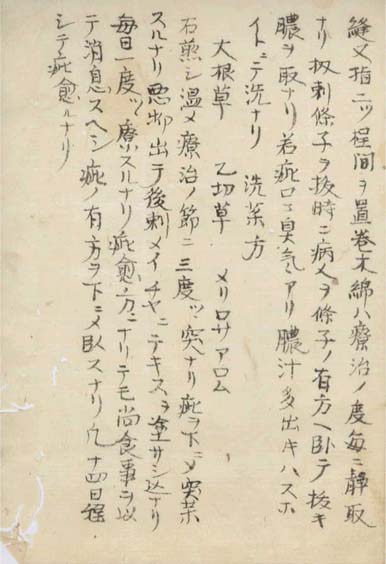 縫又指二ツ程間ヲ置巻木綿ハ療治ノ度毎ニ静取
ナリ扨刺條子ヲ抜時ニ病人ヲ條子ノ有方ヘ臥テ抜キ
膿ヲ取ナリ若疵口ニ臭気アリ膿汁多出キハスホ
イトニテ洗ナリ　洗薬方
大根草　乙切草　メリロサアロム
右煎シ温メ療治ノ節ニ三度ツヽ突ナリ疵ヲ下ニメ突薬
スルナリ悪却出テ後刺メイチヤニテキスヲ塗サシ込ナリ
毎日一度ツヽ療スルナリ疵愈方ニナリテモ尚食事ヲ以
テ消息スヘシ疵ノ有方ヲ下ニメ臥スナリ凡十四日程
シテ疵愈ルナリ